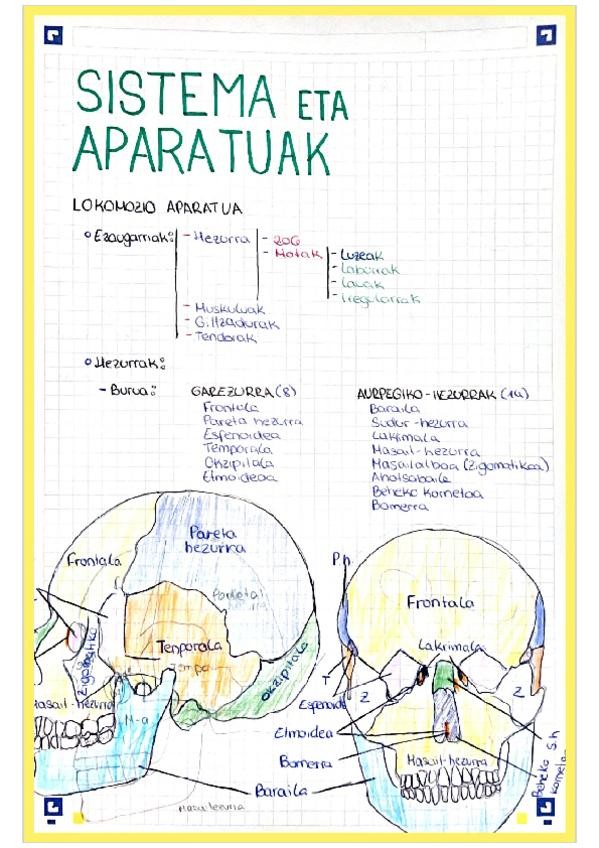 SISTEMA ETA
APARATUAK
LOKOMOZIO APARATUA
Ezaugarriak:
- Hezurra
- 206
- Motak
- Luzeak
- Laburrak
- Lauak
- Irregularrak
- Muskuluak
- Giltzadurak
- Tendoiak
Hezurrak:
- Burua:
GAREZURRA (8)
Frontala
Pareta hezurra
Esfenoidea
Temporala
Okzipitala
Etmoideoa
AURPEGIKO-HEZURRAK (14)
Baraila
Sudur-hezurra
Lakrimala
Masail-hezurra
Masailalboa (zigomatikoa)
Ahotsabaila
Beheko kornetoa
Bomerra
Pareta
hezurra
Frontala
Parietal
Temporala
Okzipitala
Zigomatiko
Masail-hezurra
M-a
P.h
Frontala
Lakrimala
T
Z
Z
Esfenoide
Etmoidea
Bomerra
Masail-hezurra
S.h
Beheko
korneta
Baraila